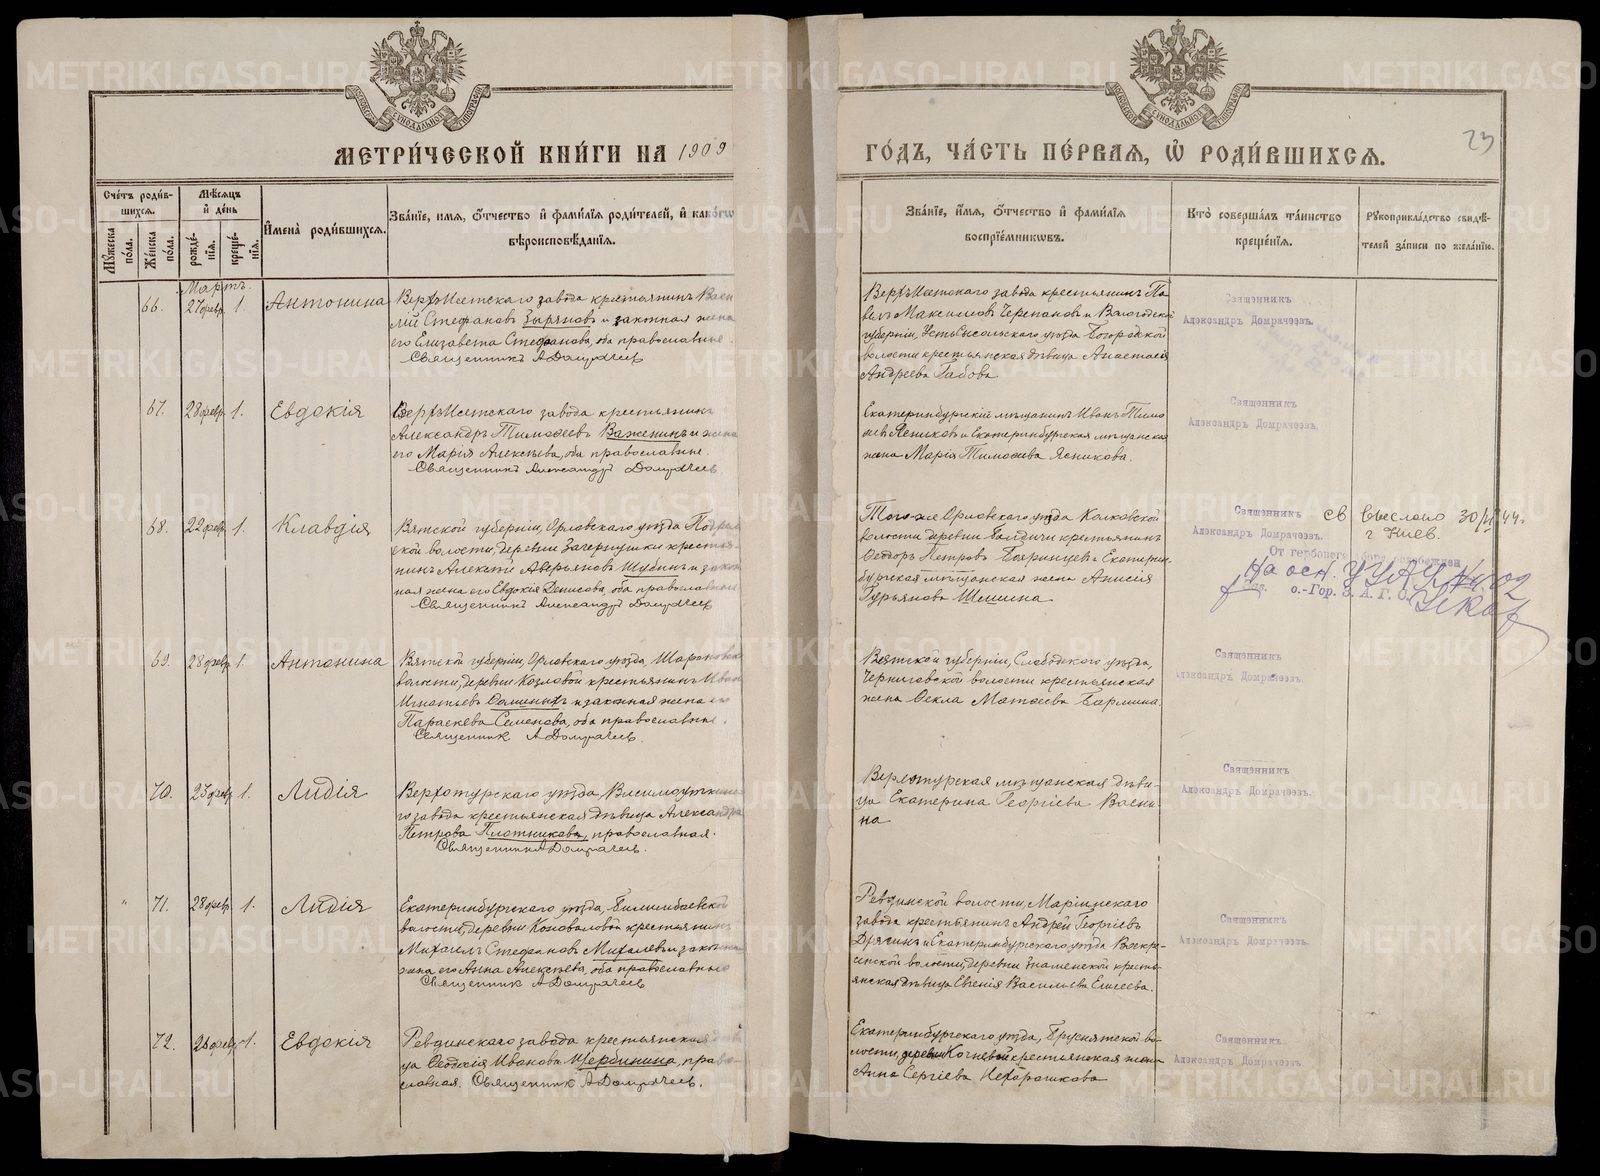 МЕТРИ́ЧЕСКОЙ КНИ́ГИ НА 1909
ГО́ДЪ, ЧА́СТЬ ПЕ́РВАѦ, Ѡ҆ РОДИ́ВШИХСѦ.
23
Сче́тъ роди́в-
шихсѧ.
Мꙋ́жеска по́ла.
Же́нска по́ла.
Мѣ́сѧцъ
и҆ де́нь
рожде́-
нїѧ.
креще́-
нїѧ.
И҆мена̀ роди́вшихсѧ.
Зва́нїе, и҆́мѧ, ѻ҆́тчество и҆ фами́лїѧ роди́телей, и҆ како́гѡ
вѣроисповѣ́данїѧ.
Зва́нїе, и҆́мѧ, ѻ҆́тчество и҆ фами́лїѧ
воспрїе́мникѡвъ.
Кто̀ соверша́лъ та́инство
креще́нїѧ.
Рꙋкоприкла́дство свидѣ́-
телей за́писи по жела́нїю.
Мартъ.
66. 27 февр. 1. Антонина
Верхъ-Исетскаго завода крестьянинъ Васи
лій Стефановъ Зыряновъ и законная жена
его Елизавета Стефанова, оба православные.
Священникъ А Домрачеев
Верхъ-Исетского завода крестьянинъ Па
велъ Максимовъ Черепановъ и Вологодской
губерніи, Устьсысольскаго уѣзда
волости крестьянская дѣвица Анастасія
Андреева Габова
Священникъ
Александръ Домрачеевъ.
67. 28 февр. 1. Евдокія
Верхъ-Исетскаго завода крестьянинъ
Александръ Тимофеевъ Важенинъ и жена
его Марія Алексѣева, оба православные.
Священникъ Александръ Домрачеев
Екатеринбургскій мѣщанинъ Иванъ Тимо
феевъ Ясниковъ и Екатеринбургская мѣщанская
жена Марія Тимофеева Ясникова.
Священникъ
Александръ Домрачеевъ.
68. 22 февр. 1. Клавдія
Вятской губерніи, Орловскаго уѣзда
ской волости, деревни крестья-
нинъ Алексѣй Аверьяновъ Шубинъ и закон
ная жена его Евдокія Денисова, оба православные
Священникъ Александръ Домрачеев
Того-же Орловскаго уѣзда
волости деревни крестьянинъ
Феодоръ Петровъ и Екатерин-
бургская мѣщанская жена Анисія
Гурьянова Шишина
Священникъ
Александръ Домрачеевъ.
св выслано 30/ 44г.
г Киев.
От гербового сбора освобожден
на осн.
о.-Гор. З. А. Г. С.
69. 28 февр. 1. Антонина
Вятской губерніи, Орловскаго уѣзда,
волости, деревни Козловой крестьянинъ Иван
Игнатьевъ и законная жена его
Параскева Семенова, оба православные.
Священник А Домрачеев.
Вятской губерніи, Слободского уѣзда,
волости крестьянская
жена Фекла Матвеева Бармина.
Священникъ
Александръ Домрачеевъ.
70. 23 февр. 1. Лидія
Верхотурскаго уѣзда,
го завода крестьянская дѣвица Александра
Петрова Плотникова, православная.
Священник А Домрачеев.
Верхотурская мѣщанская дѣви-
ца Екатерина Георгіева
на
Священникъ
Александръ Домрачеевъ.
71. 28 февр. 1. Лидія
Екатеринбургскаго уѣзда, Билимбаевской
волости, деревни Коноваловой крестьянинъ
Михаилъ Стефановъ Михалевъ и законная
жена его Анна Алексѣева, оба православные
Священник А Домрачеев
Ревдинской волости, Маріинскаго
завода крестьянинъ Андрей Георгіевъ
Дрягинъ и Екатеринбургскаго уѣзда Воскре-
сенской волости, деревни Знаменской кресть-
янская дѣвица Евгенія Васильева Елисеева.
Священникъ
Александръ Домрачеевъ.
72. 28 февр. 1. Евдокія
Ревдинскаго завода крестьянская дѣви
ца Феоктія Иванова Щербинина, право-
славная. Священник А Домрачеев.
Екатеринбургскаго уѣзда, Брусянской во-
лости, деревни крестьянская жена
Анна Сергіева Нехорошкова
Священникъ
Александръ Домрачеевъ.
METRIKI.GASO-URAL.RU